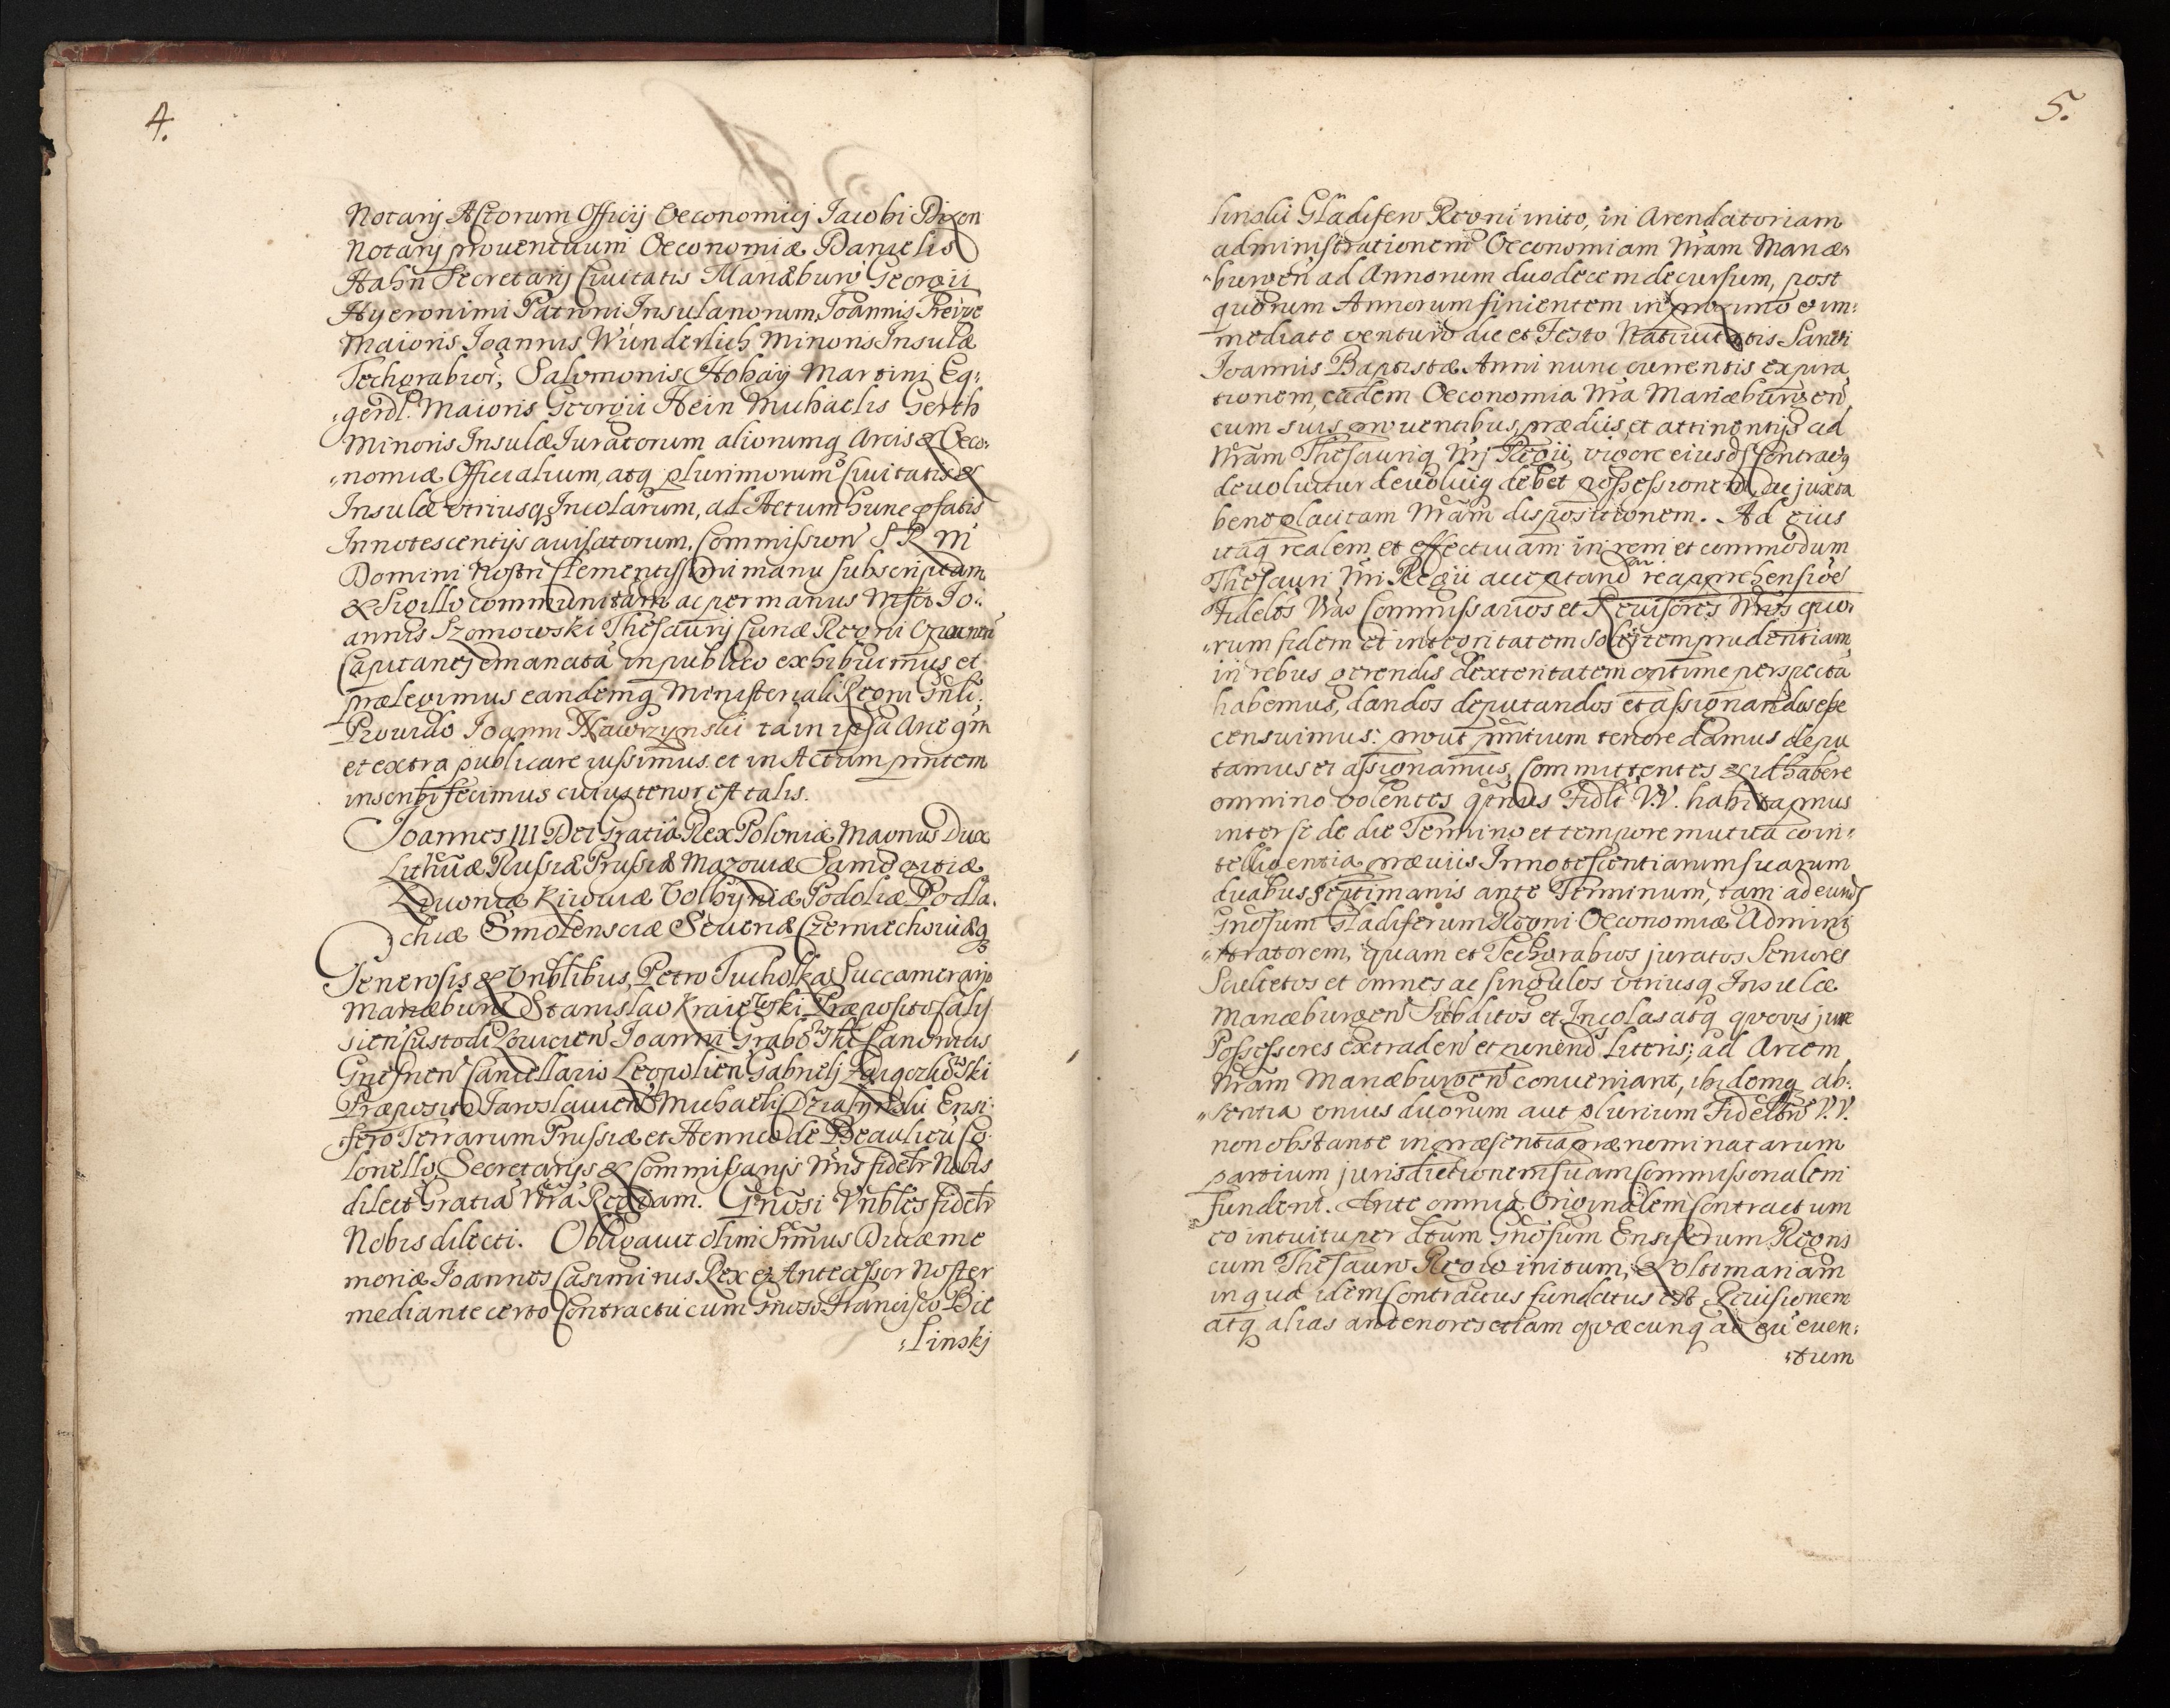 4.
Notarij Actorum Officij Oeconomicj Jacobi Dixon
Notarij prouentuum Oeconomiæ Danielis
Hahn Secretarij Ciuitatis Mariæbur̃ Georgii
Hyeronimi Patruni Insulanorum, Joannis Preuve
Maioris Joannis Wunderlich Minoris Insulæ
Techgrabior̃, Salomonis Hohaÿ Martini Eg:
„gerdt. Maioris Georgii Hein Michaelis Gerth
Minoris Insulæ Juratorum aliorumq Arcis & Oeco:
„nomiæ Officialium, atq plurimorum Ciuitatis &
Insulæ vtriusq Incolarum, ad Actum hunc pfatis
Innotescentijs auisatorum. Commission̄ S R M
Domini Nostri Clementissimi manu subscriptam
& Sigillo communitam ac per manus Mfci Jo:
annis Szomowski Thesaurij Curiæ Regni
Capitanej emanatā in publico exhibuimus et
prælegimus eandemq Ministeriali Regni Gnli:
Prouido Joanni Nawrzynski tam in ipsa Arce qm̄
et extra publicare iussimus. et in Actum pn̄tem
inscribi fecimus cuius tenor est talis.
Joannes III Dei Gratia Rex Poloniæ Magnus Dux
Lithuāæ Russiæ Prussiæ Mazouiæ Samogitiæ
Liuoniæ Kiiouiæ Volhyniæ Podoliæ Podla.
chiæ Smolensciæ Seueriæ Czerniechouiæq
Generosis & Vnblibus, Petro Tucholka Succamerario
Mariæburg Stanislao Kraiewski Præposito
sien̄ Custodi Louicien̄ Joanni Grabowski Canonicis
Gnesnen̄ Cancellario Leopolien̄ Gabrielj
Præposito Jaroslauien̄ Michaeli Dzialynski Ensi:
„fero Terrarum Prussiæ et Henrico de Beaulieu Co:
lonello, Secretarijs & Commissarijs Nr̄is fidelr Nobis
dilect Gratiā Nr̄a Regiam. Gn̄osi Vnbles fidelr
Nobis dilecti. Obligauit olim Srn̄us Diuæ me
moriæ Joannes Casimirus Rex & Antecessor Noster
mediante certo Contractu cum Gnoso Francisco Bie
„linskj
5.
linski Gladifero Regni inito, in Arendatoriam
administrationem Oeconomiam Nr̄am Mariæ:
„burgen̄ ad Annorum duodecem decursum, post
quorum Annorum finientem in proximo & im:
mediate venturo die et Festo Natiuitatis Sancti
Joannis Baptistæ Anni nunc currentis expira
tionem, eadem Oeconomia Nr̄a Mariæburgen̄,
cum suis prouentibus, prædiis, et attinentijs ad
Nr̄am Thesauriq Nr̄j Regii, vigore eiusd Contractg
deuoluitur deuoluiq debet possessionem, ac juxta
beneplacitam Nr̄am dispositionem. Ad eius
itaq realem et effectiuam in rem et commodum
Thesauri Nr̄i Regii acceptand reapprehensiōē
Fidelts Vr̄as Commissarios et Reuisores Nr̄os quo:
„rum fidem et integritatem solertem prudentiam,
in rebus gerendis dexteritatem optime perspectā
habemus, dandos deputandos et assignandos esse
censuimus: prout pn̄tium tenore damus depu
tamus et assignamus, Committentes & id habere
omnino volentes qtenus Fidlt V.V. habita prius
inter se de die Termino et tempore mutua coin:
telligentia præuiis Innotescentiarum suarum
duabus septimanis ante Terminum, tam ad eund
Gnosum Gladiferum Regni Oeconomiæ Admini
„stratorem, quam et Techgrabios juratos Seniores
Scultetos et omnes ac singulos vtriusq Insulæ
Mariæburgen̄ Subditos et Incolas atq quouis jure
Possessores extraden̄ et Literis; ad Arcem
Nr̄am Mariæburgen̄ conueniant, ibidemq ab:
„sentia vnius duorum aut plurium Fideltn̄ V.V.
non obstante in præsentia prænominatarum
partium jurisdictionem suam Commissonalem
fundent. Ante omnia Originalem Contractum
eo intuitu per dtum Gnosum Ensiferum Regni
cum Thesauro Regio initum, & vltimariam
in qua idem Contractus fundatus est Reuisionem
atq alias anteriores etiam quæcunq ad eū euen:
„tum